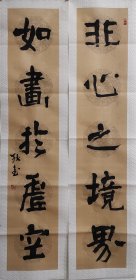 非心之境界
如畫於虛空